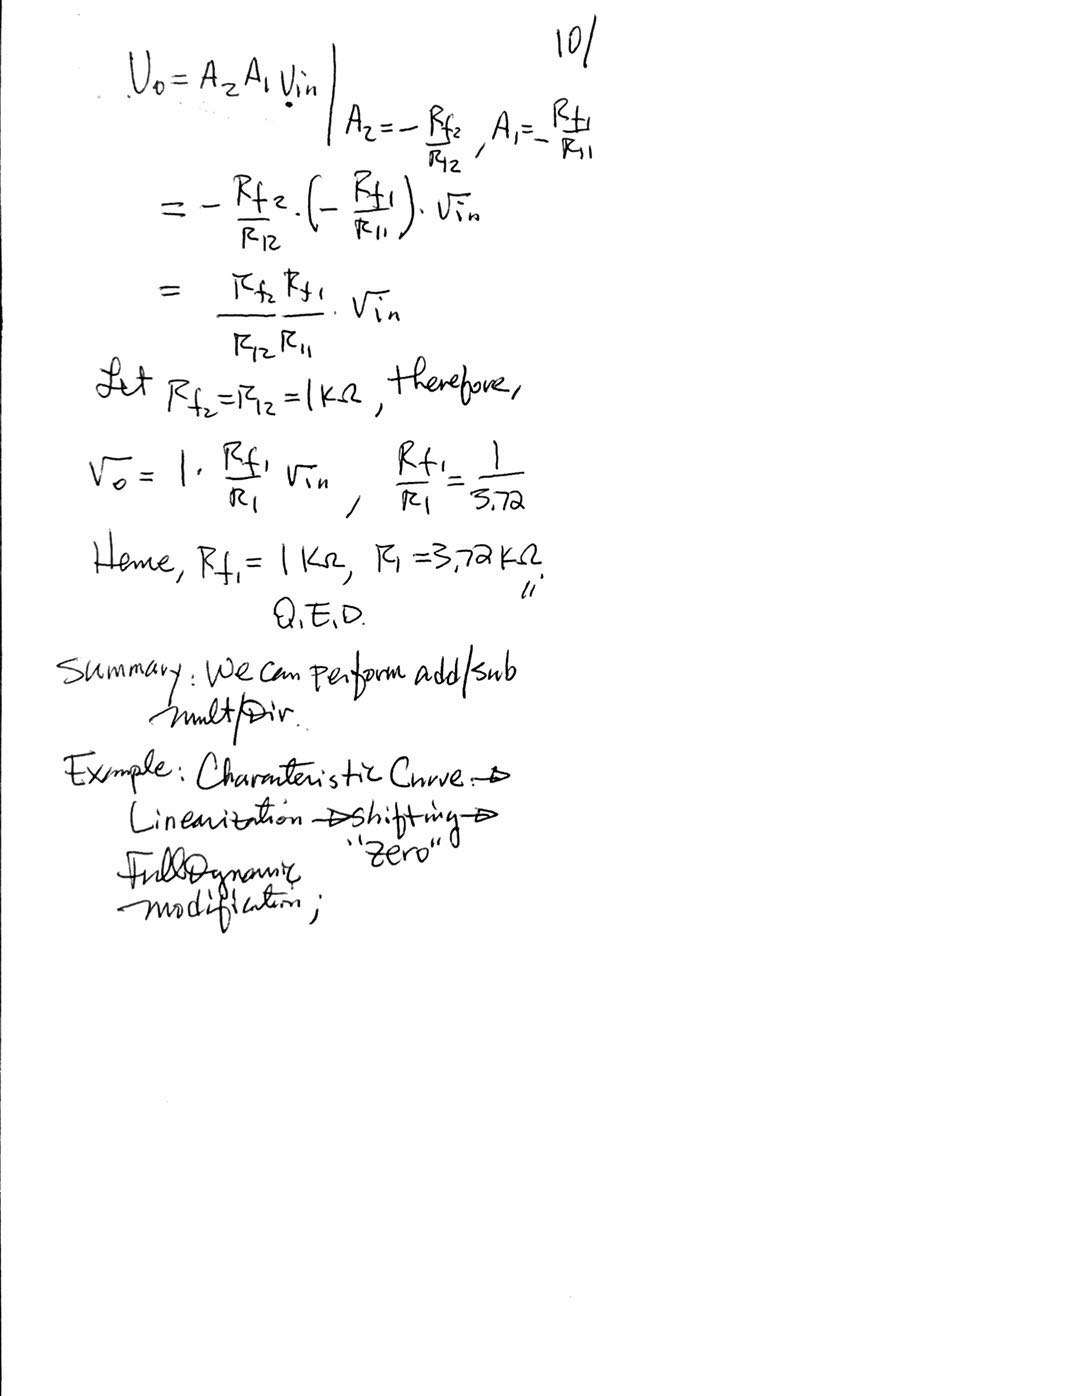 10/
V₀ = A₂ A₁ Vin | A₂ = - Rf₂/R₁₂ , A₁ = - Rf₁/R₁₁
= - Rf₂/R₁₂ · (- Rf₁/R₁₁) · Vin
= Rf₂ Rf₁ / R₁₂ R₁₁ · Vin
Let Rf₂ = R₁₂ = 1 KΩ, therefore,
V₀ = 1 · Rf₁/R₁ Vin , Rf₁/R₁ = 1/3.72
Hence, Rf₁ = 1 KΩ, R₁ = 3.72 KΩ. "
Q.E.D.
Summary: We can perform add/sub
mult/Div.
Example: Characteristic Curve →
Linearization → shifting →
"Zero"
Full Dynamic
modification;